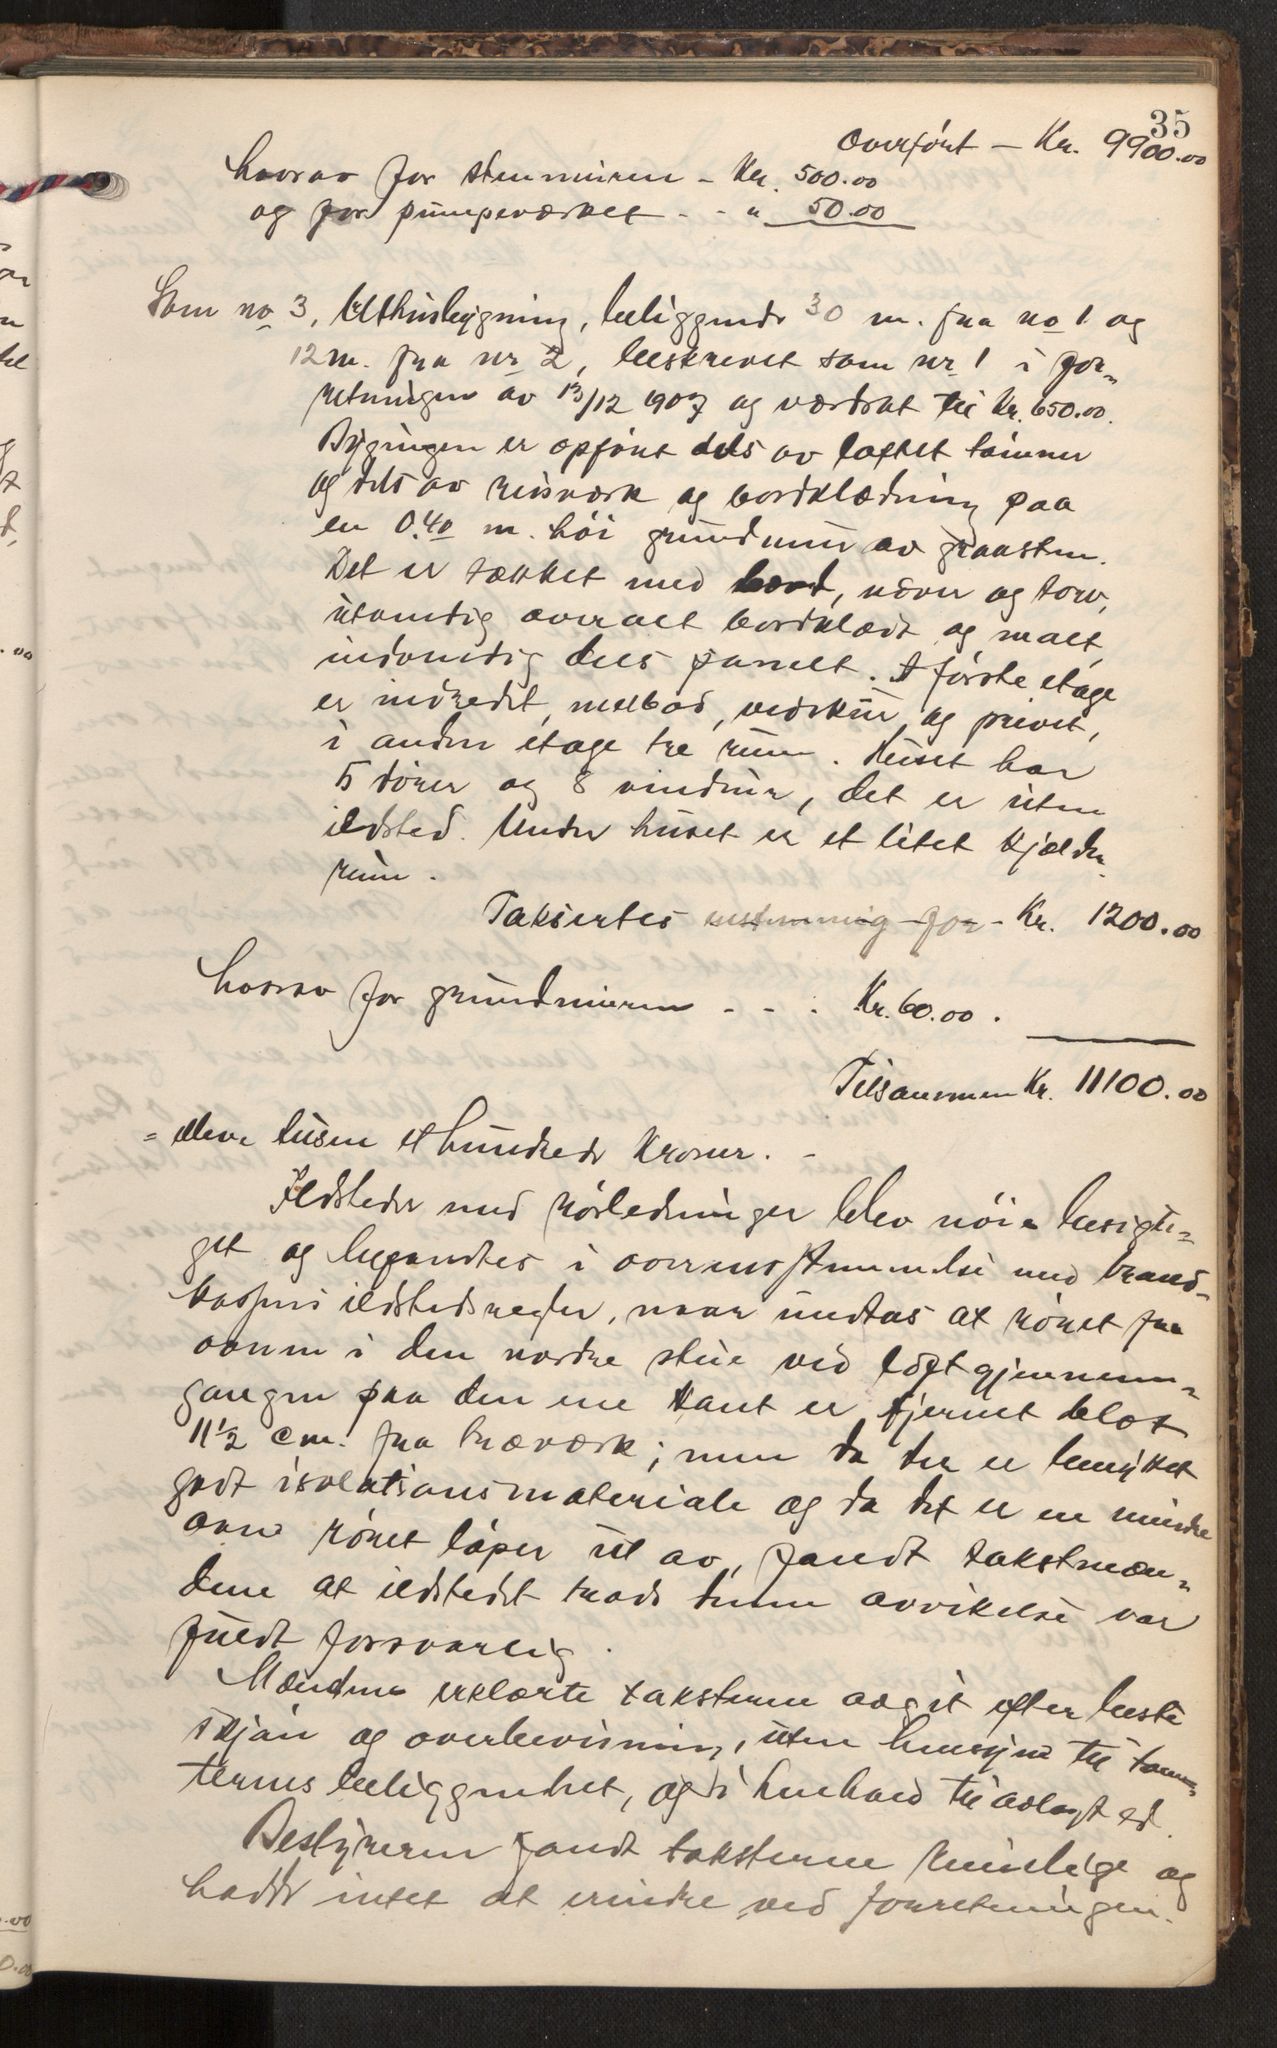 35
Overført - Kr. 9900.00
hvorav for stenmuren - Kr. 500.00
og for pumpeverket - - " 50.00
Som no 3, Uthusbygning, beliggende 30 m. fra no 1 og
12 m. fra nr 2, beskrevet som nr 1 i for-
retningen av 13/12 1907 og værdsat til Kr. 650.00.
Bygningen er opført dels av laftet tømmer
og dels av reisverk og bordklædning paa
en 0.40 m. høi grundmur av graasten.
Det er tækket med bord, næver og torv,
utvendig overalt bordklædt og malt,
indvendig dels panelt. I første etage
er indredet, melbod, vedskur og privet,
i anden etage tre rum. Huset har
5 dører og 8 vinduer, det er uten
ildsted. Under huset er et litet kjælder-
rum.
Taksertes enstemmig for - Kr. 1200.00
hvorav for grundmuren - - . Kr. 60.00.
Tilsammen Kr. 11100.00
= elleve tusen et hundrede kroner. -
Ildsteder med rørledninger blev nøie besigti-
get og befandtes i overensstemmelse med brand-
kassens ildstedsregler, naar undtas at røret fra
ovnen i den nordre stue ved loftgjennem-
gangen paa den ene kant er fjernet blot
11½ cm. fra træverk; men da der er benyttet
godt isolationsmateriale og da det er en mindre
ovn røret løper ut av, fandt takstmæn-
dene at ildstedet trods denne avvikelse var
fuldt forsvarlig.
Mændene erklærte taksterne avgit efter beste
skjøn og overbevisning, uten hensyn til tom-
ternes beliggenhet, og i henhold til avlagt ed.
Bestyreren fandt taksterne rimelige og
hadde intet at erindre ved forretningen.